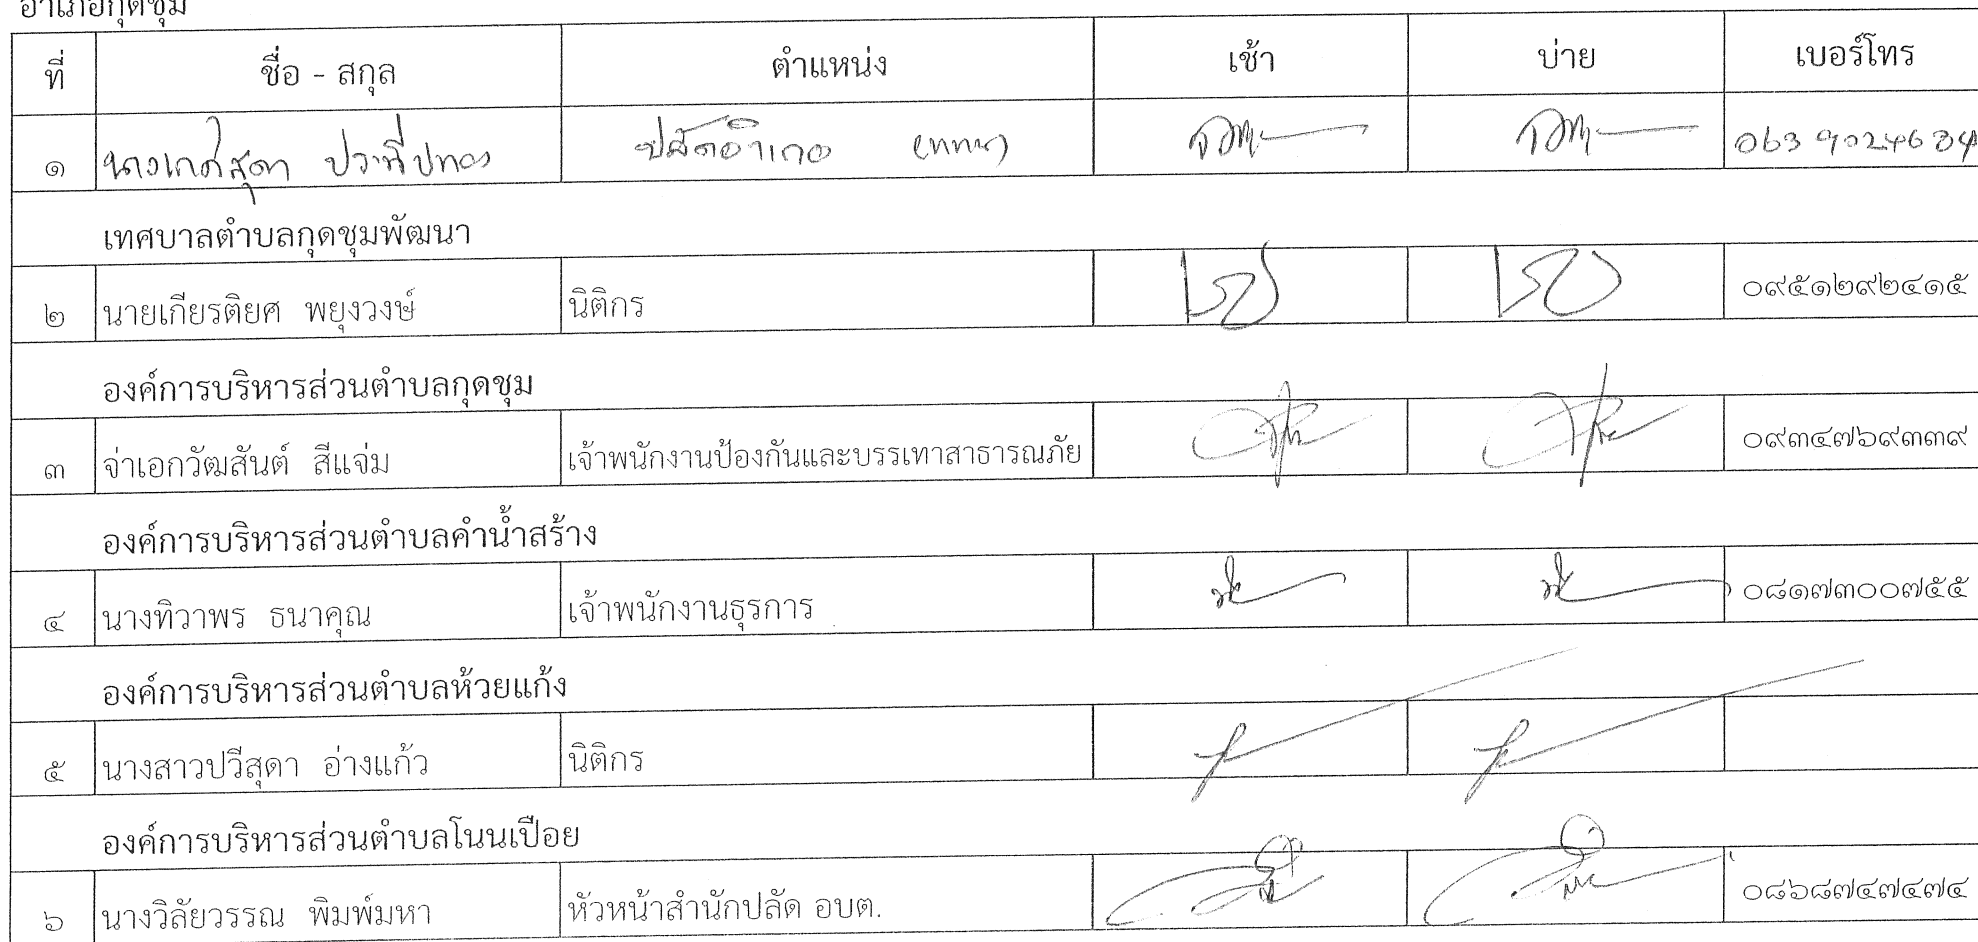 อำเภอกุดชุม
ที่ ชื่อ - สกุล ตำแหน่ง เช้า บ่าย เบอร์โทร
๑ นางเกศสุดา ประทีปทอง ปลัดอำเภอ 063 9024634
เทศบาลตำบลกุดชุมพัฒนา
๒ นายเกียรติยศ พยุงวงษ์ นิติกร ๐๙๕๑๒๙๒๔๑๕
องค์การบริหารส่วนตำบลกุดชุม
๓ จ่าเอกวัฒสันต์ สีแจ่ม เจ้าพนักงานป้องกันและบรรเทาสาธารณภัย ๐๙๓๔๗๖๙๓๓๙
องค์การบริหารส่วนตำบลคำน้ำสร้าง
๔ นางทิวาพร ธนาคุณ เจ้าพนักงานธุรการ ๐๘๑๗๓๐๐๗๕๕
องค์การบริหารส่วนตำบลห้วยแก้ง
๕ นางสาวปวีสุดา อ่างแก้ว นิติกร
องค์การบริหารส่วนตำบลโนนเปือย
๖ นางวิลัยวรรณ พิมพ์มหา หัวหน้าสำนักปลัด อบต. ๐๘๖๘๗๔๗๔๗๔